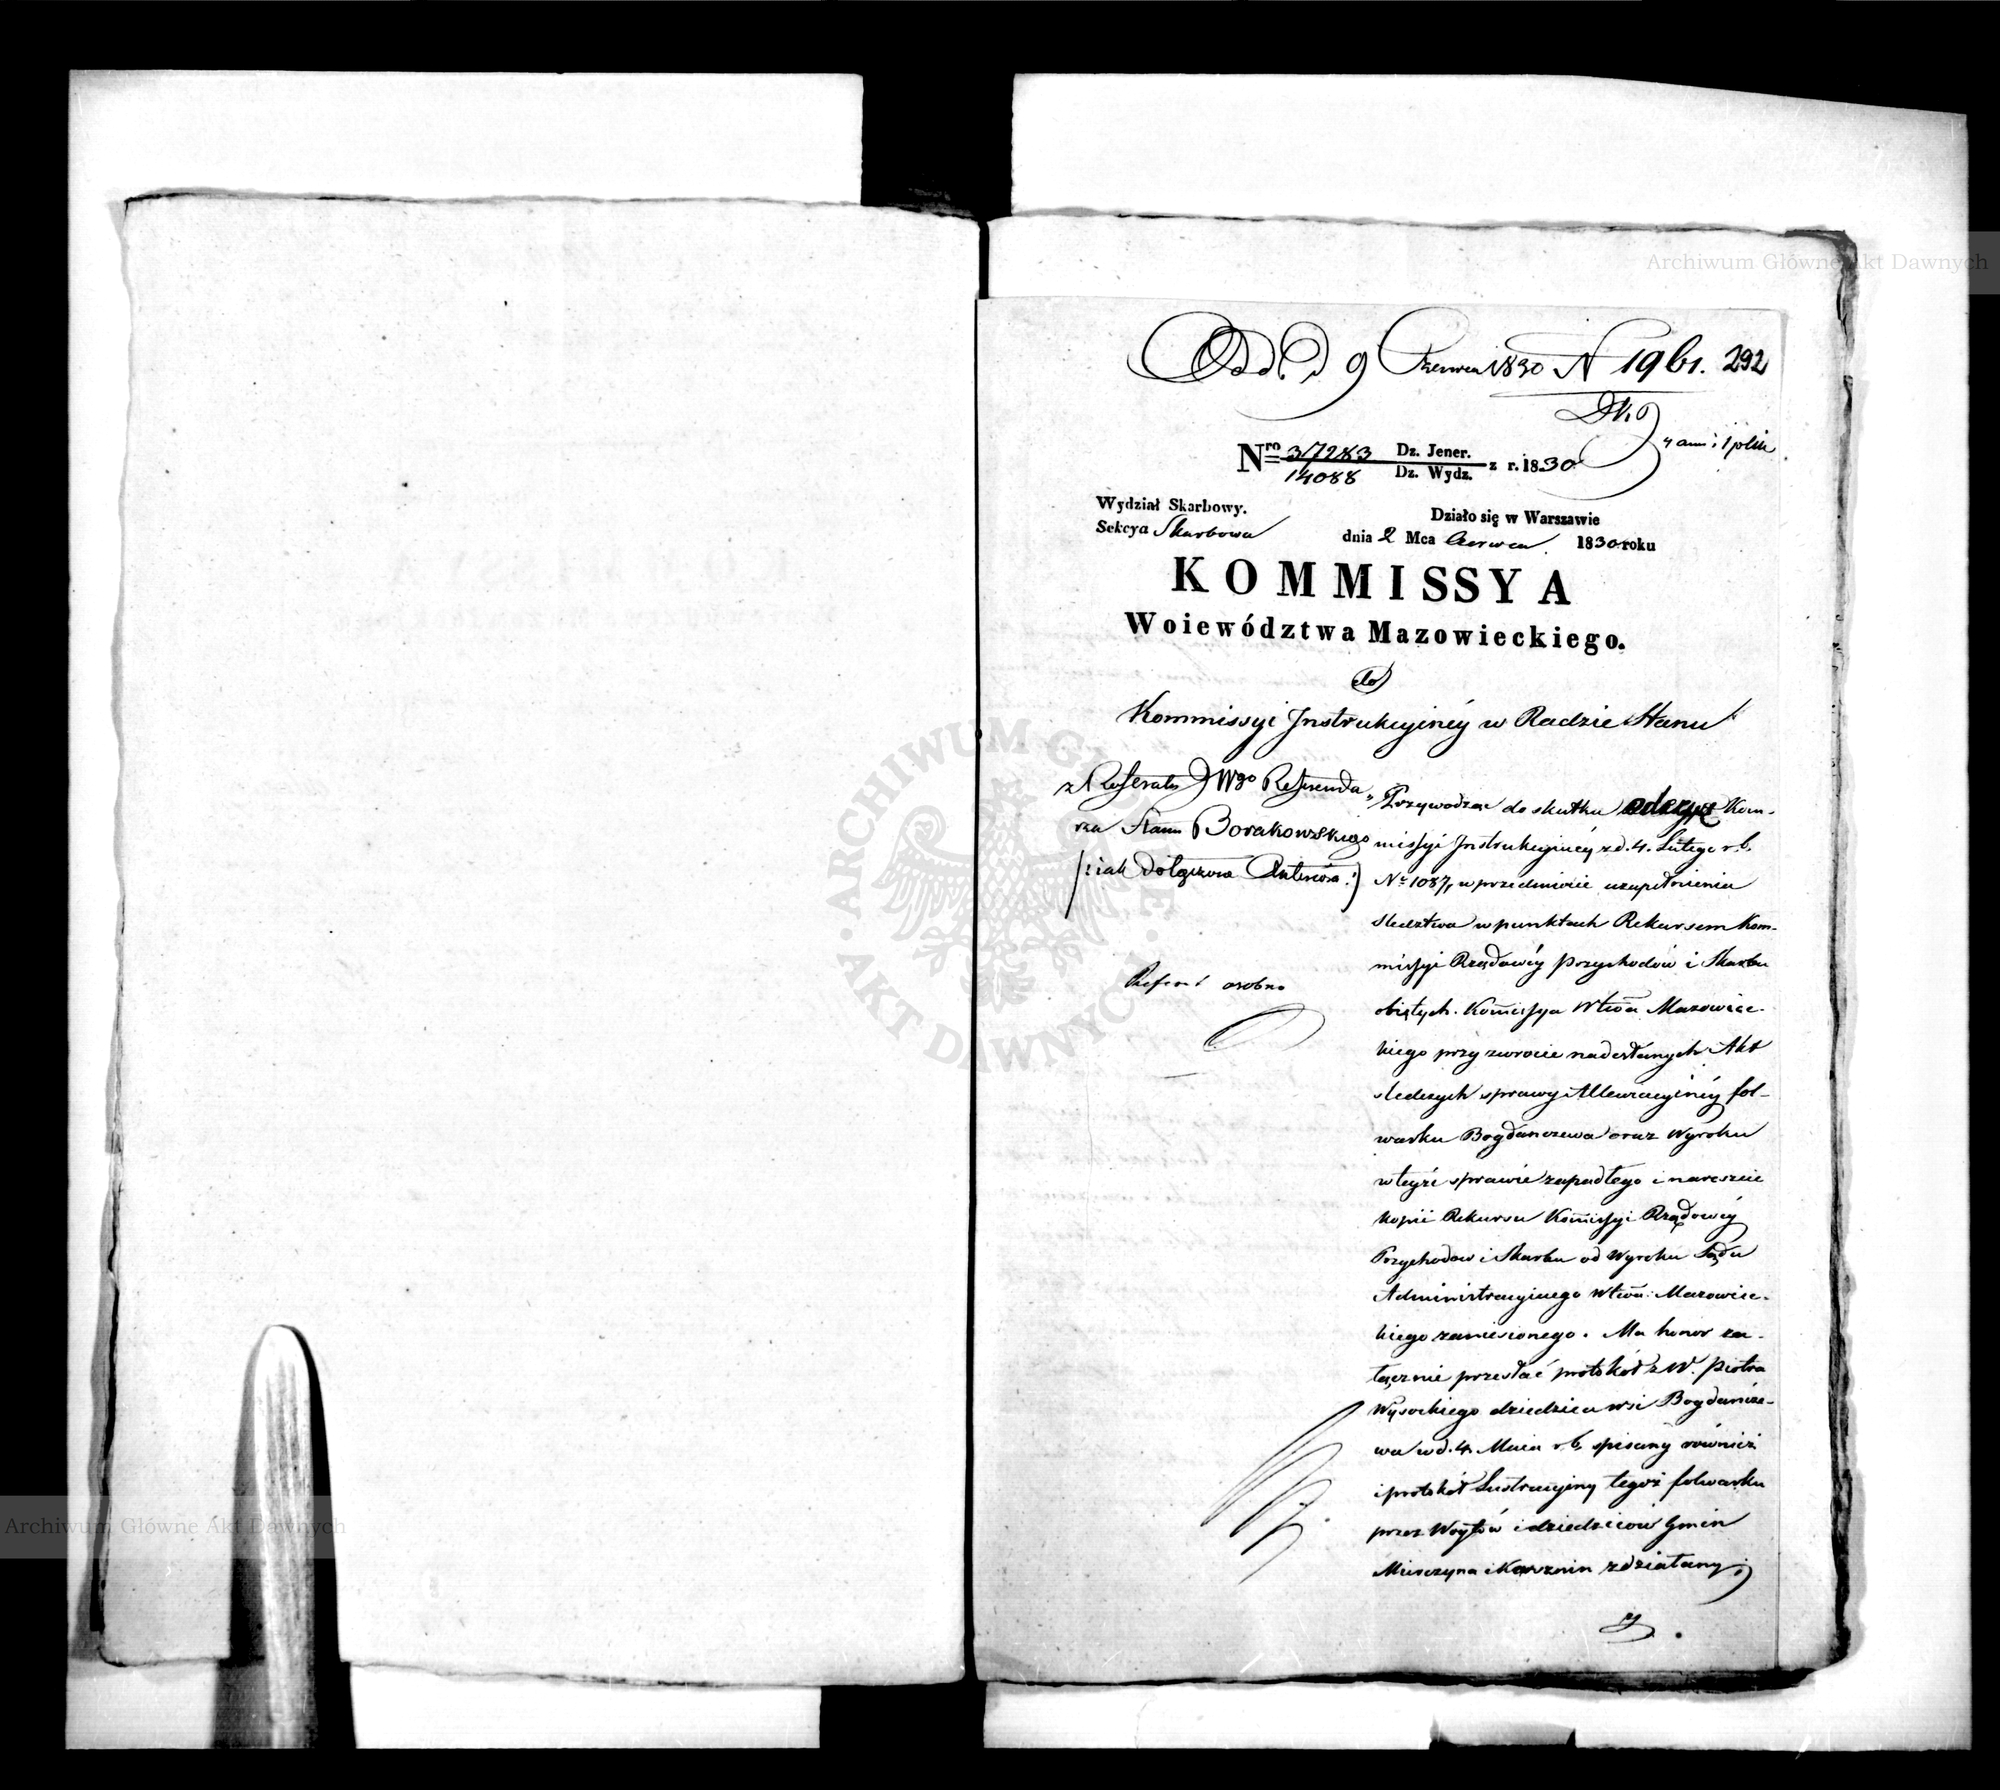 Odd. D 9 Czerwca 1830 N 1961. 292
4 ann: i 1 plik
Nro 37283 Dz. Jener.
14088 Dz. Wydz. z r. 1830
Wydział Skarbowy.
Sekcya Skarbowa
Działo się w Warszawie
dnia 2 Mca Czerwca 1830 roku
KOMMISSYA
Woiewództwa Mazowieckiego.
do
Kommissyi Instrukcyinéy w Radzie Stanu
z Referatu Wgo Referenda
rza Stanu Borakowskiego
/: iak dołączona :/
Referat osobno
Przywodząc do skutku odezwę Kom-
missyi Instrukcyinéy z d. 4. Lutego r.b.
Nr 1087, w przedmiocie uzupełnienia
śledztwa w punktach Rekursem Kom-
missyi Rządowéy Przychodów i Skarbu
obiętych. Kommissya Wtwa Mazowiec-
kiego przy zwrocie nadesłanych Akt
śledczych sprawy Allewiacyinéy fol-
warku Bogdanczewa oraz Wyroku
w teyże sprawie zapadłego i nareszcie
kopii Rekursu Kommissyi Rządowéy
Przychodow i Skarbu od Wyroku Sądu
Administracyinego Wtwa: Mazowiec-
kiego zaniesionego. Ma honor za-
łącznie przesłać protokół z W. Piotra
Wysockiego dziedzica wsi Bogdancze-
wa w d. 4. Maia r.b. spisany również
i protokół Lustracyiny tegoż folwarku
przez Woytów i dziedziców Gmin
zdziałany
Archiwum Główne Akt Dawnych
Archiwum Główne Akt Dawnych
ARCHIWUM GŁÓWNE AKT DAWNYCH